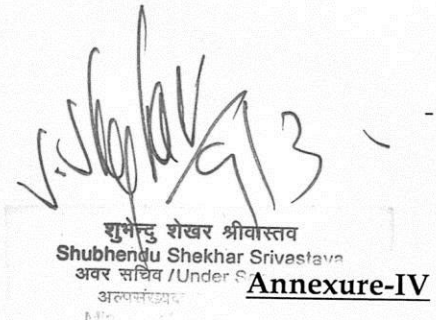 S. Shekhar
9/3
शुभेन्दु शेखर श्रीवास्तव
Shubhendu Shekhar Srivastava
अवर सचिव /Under S
Annexure-IV